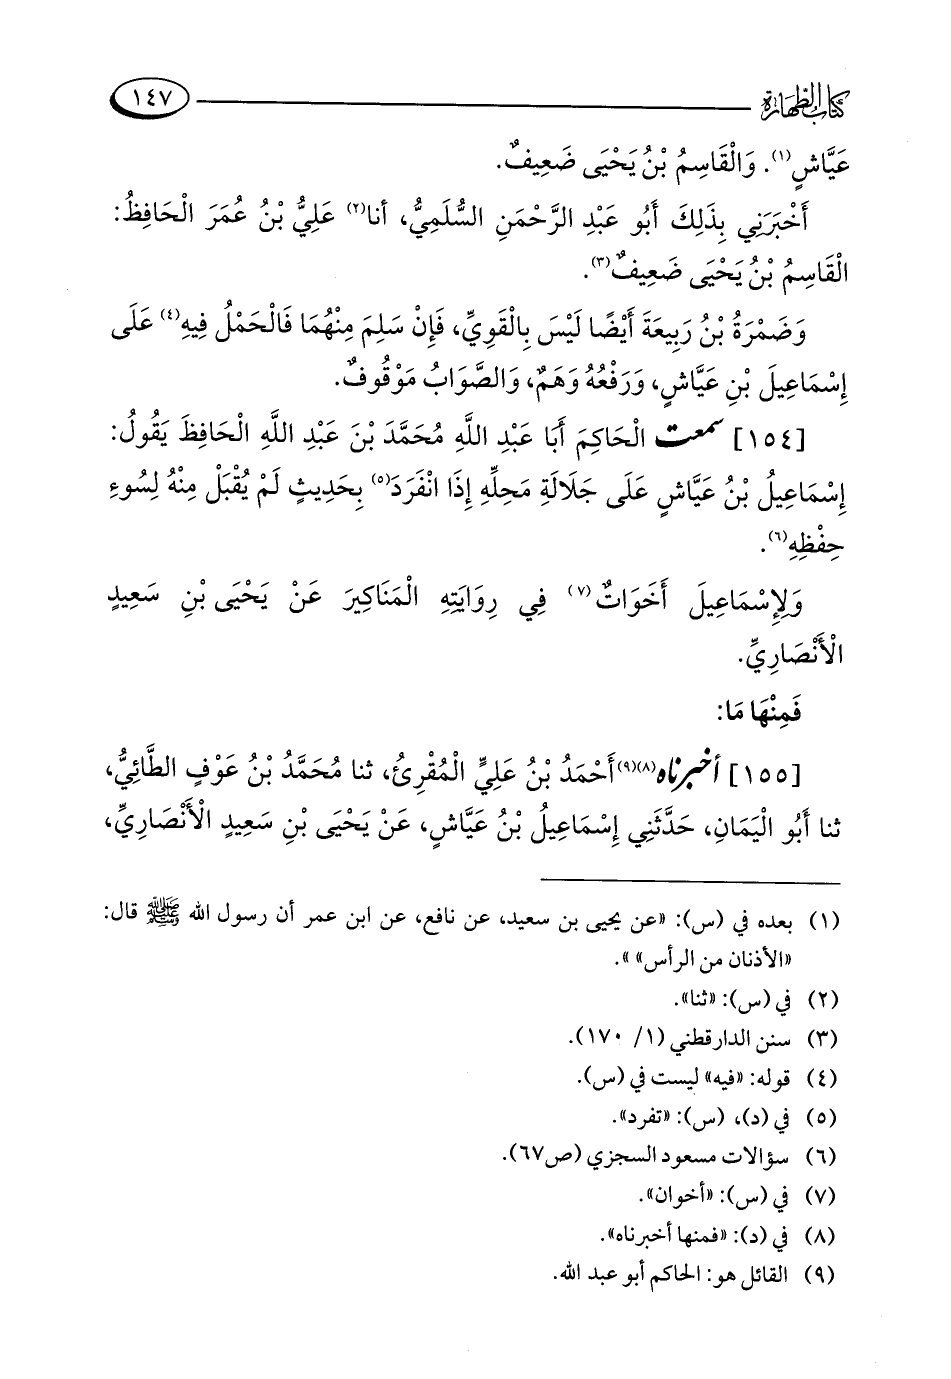 كتاب الطهارة ١٤٧
عَيَّاشٍ(١). وَالْقَاسِمُ بْنُ يَحْيَى ضَعِيفٌ.
أَخْبَرَنِي بِذَلِكَ أَبُو عَبْدِ الرَّحْمَنِ السُّلَمِيُّ، أنا(٢) عَلِيُّ بْنُ عُمَرَ الْحَافِظُ:
الْقَاسِمُ بْنُ يَحْيَى ضَعِيفٌ(٣).
وَضَمْرَةُ بْنُ رَبِيعَةَ أَيْضًا لَيْسَ بِالْقَوِيِّ، فَإِنْ سَلِمَ مِنْهُمَا فَالْحَمْلُ فِيهِ(٤) عَلَى
إِسْمَاعِيلَ بْنِ عَيَّاشٍ، وَرَفْعُهُ وَهَمٌ، وَالصَّوَابُ مَوْقُوفٌ.
[١٥٤] سمعت الْحَاكِمَ أَبَا عَبْدِ اللَّهِ مُحَمَّدَ بْنَ عَبْدِ اللَّهِ الْحَافِظَ يَقُولُ:
إِسْمَاعِيلُ بْنُ عَيَّاشٍ عَلَى جَلَالَةِ مَحِلِّهِ إِذَا انْفَرَدَ(٥) بِحَدِيثٍ لَمْ يُقْبَلْ مِنْهُ لِسُوءِ
حِفْظِهِ(٦).
وَلِإِسْمَاعِيلَ أَخَوَاتٌ(٧) فِي رِوَايَتِهِ الْمَنَاكِيرَ عَنْ يَحْيَى بْنِ سَعِيدٍ
الْأَنْصَارِيِّ.
فَمِنْهَا مَا:
[١٥٥] أخبرناه(٨)(٩) أَحْمَدُ بْنُ عَلِيٍّ الْمُقْرِئُ، ثنا مُحَمَّدُ بْنُ عَوْفٍ الطَّائِيُّ،
ثنا أَبُو الْيَمَانِ، حَدَّثَنِي إِسْمَاعِيلُ بْنُ عَيَّاشٍ، عَنْ يَحْيَى بْنِ سَعِيدٍ الْأَنْصَارِيِّ،
(١) بعده في (س): «عن يحيى بن سعيد، عن نافع، عن ابن عمر أن رسول الله ﷺ قال:
«الأذنان من الرأس» ».
(٢) في (س): «ثنا».
(٣) سنن الدارقطني (١/ ١٧٠).
(٤) قوله: «فيه» ليست في (س).
(٥) في (د)، (س): «تفرد».
(٦) سؤالات مسعود السجزي (ص٦٧).
(٧) في (س): «أخوان».
(٨) في (د): «فمنها أخبرناه».
(٩) القائل هو: الحاكم أبو عبد الله.